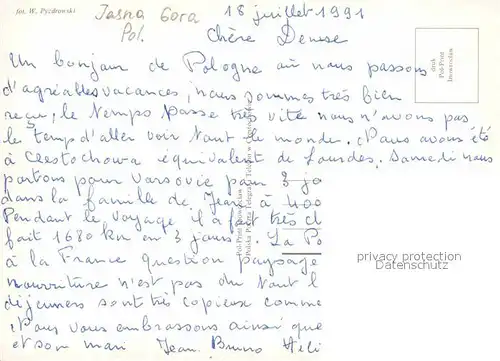 fot. W. Pyzdrowski
Jasna Gora
Pol.
18 juillet 1991
Chère Denise
Un bonjour de Pologne où nous passons
d'agréables vacances, nous sommes très bien
reçu, le temps passe très vite nous n'avons pas
le temps d'aller voir tout le monde. Nous avons été
à Czestochowa équivalent de Lourdes. Samedi nous
partons pour Varsovie pour 3 jo
dans la famille de Jean à 400
Pendant le voyage il a fait très ch
fait 1680 km en 3 jours. La Po
à la France question paysage
nourriture n'est pas du tout l
déjeuners sont très copieux comme
Nous vous embrassons ainsi que
et son mari Jean. Bruno Héli
druk
Pol-Print
Inowrocław
Pol-Print Inowrocław
Polska Poczta Telegraf i Telefon w Częstochowie
privacy protection
Datenschutz